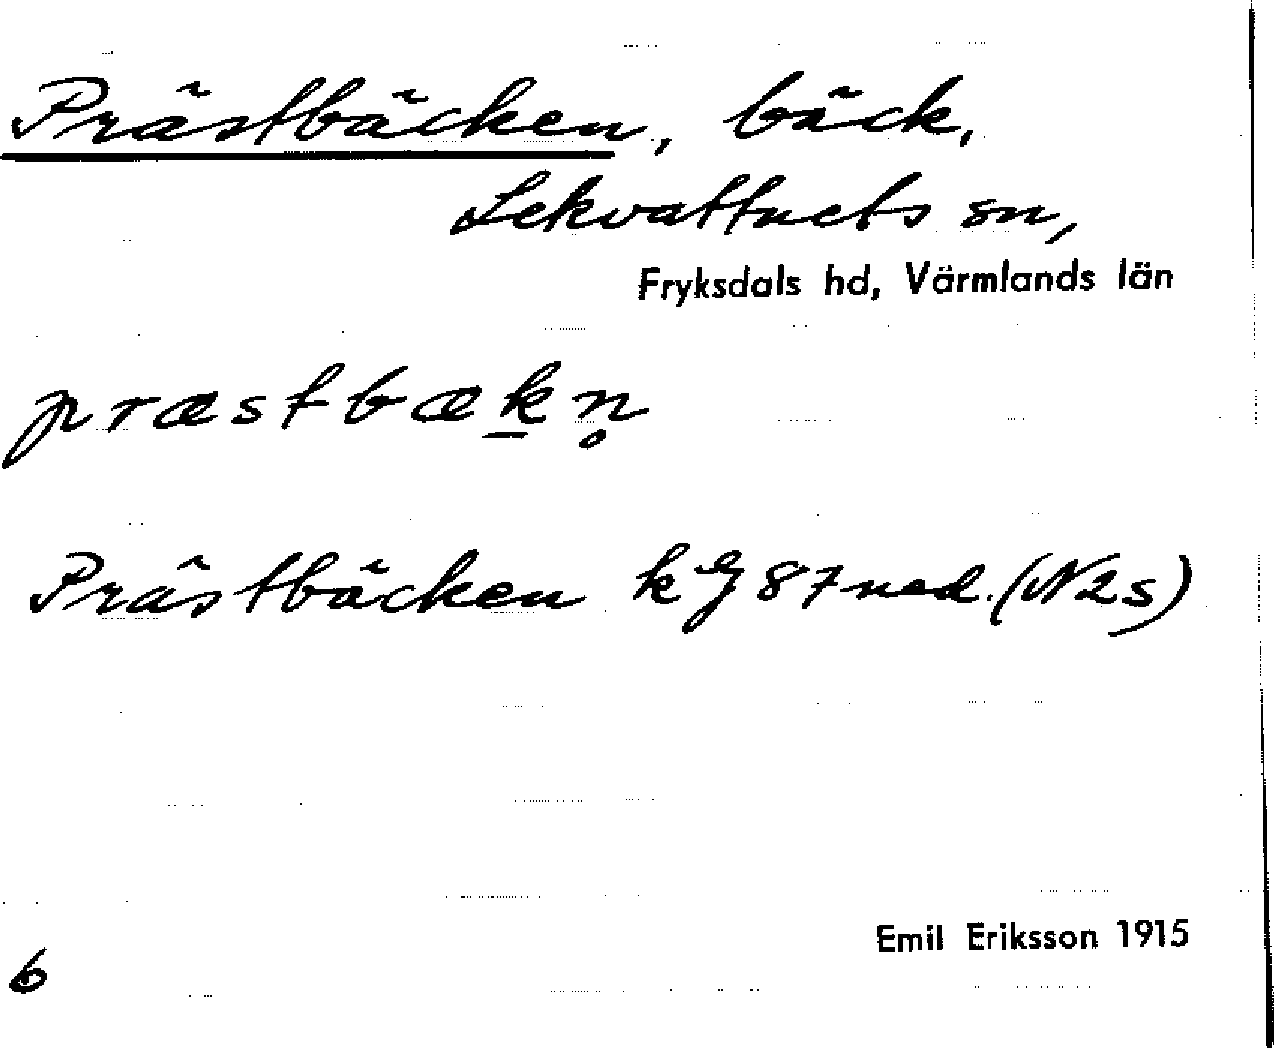 Prästbäcken, bäck,
Lekvattnets sn,
Fryksdals hd, Värmlands län
præstbæk̲n̥
Prästbäcken kg 87 ned. (N2s)
Emil Eriksson 1915
6